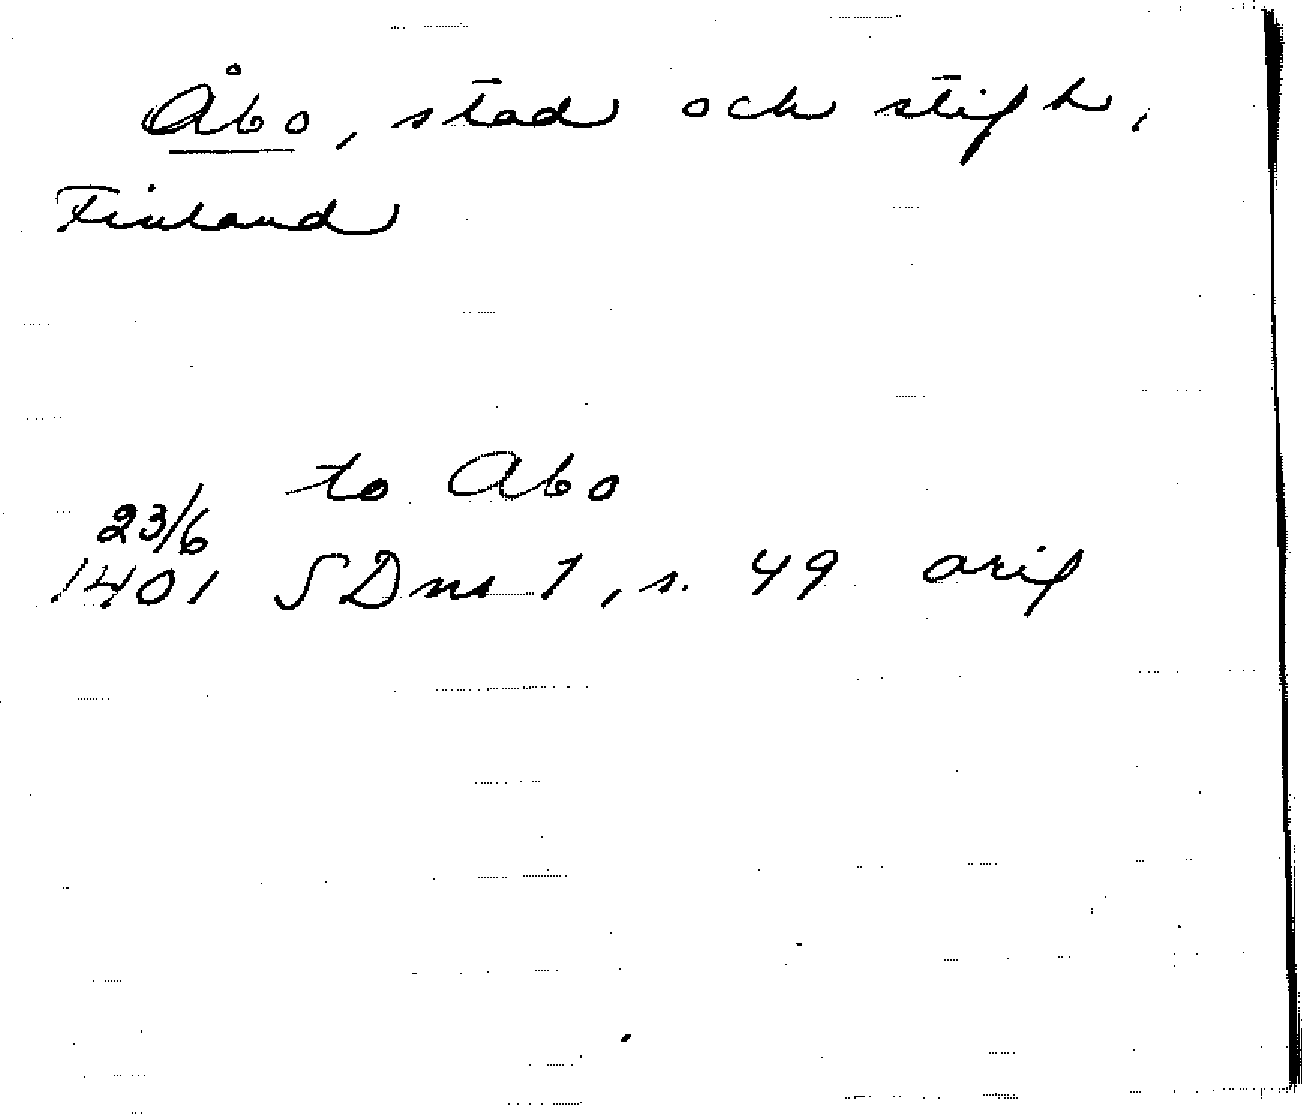 Åbo, stad och stift,
Finland
to Abo
23/6
1401 SDns 1, s. 49 orig